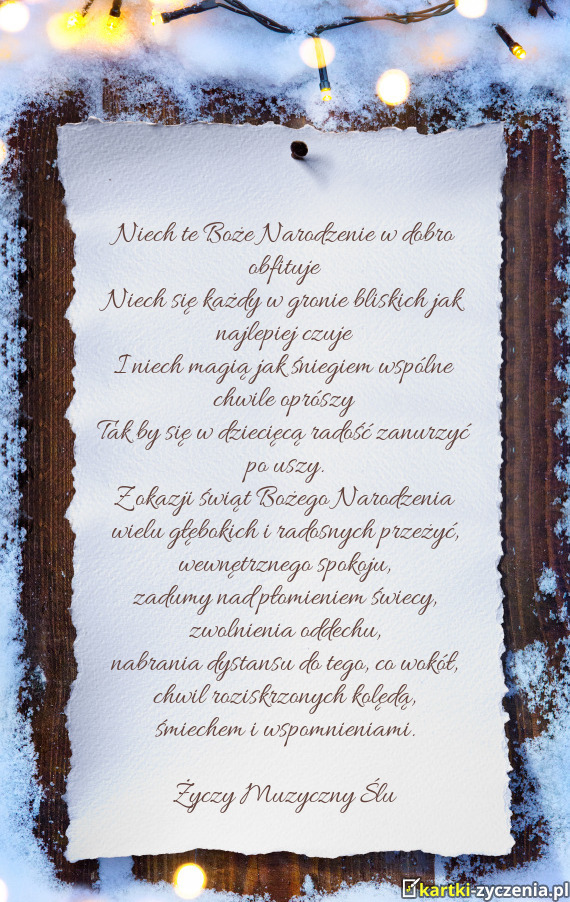 Niech te Boże Narodzenie w dobro
obfituje
Niech się każdy w gronie bliskich jak
najlepiej czuje
I niech magią jak śniegiem wspólne
chwile oprószy
Tak by się w dziecięcą radość zanurzyć
po uszy.
Z okazji świąt Bożego Narodzenia
wielu głębokich i radosnych przeżyć,
wewnętrznego spokoju,
zadumy nad płomieniem świecy,
zwolnienia oddechu,
nabrania dystansu do tego, co wokół,
chwil roziskrzonych kolędą,
śmiechem i wspomnieniami.
Życzy Muzyczny Ślu
kartki-zyczenia.pl